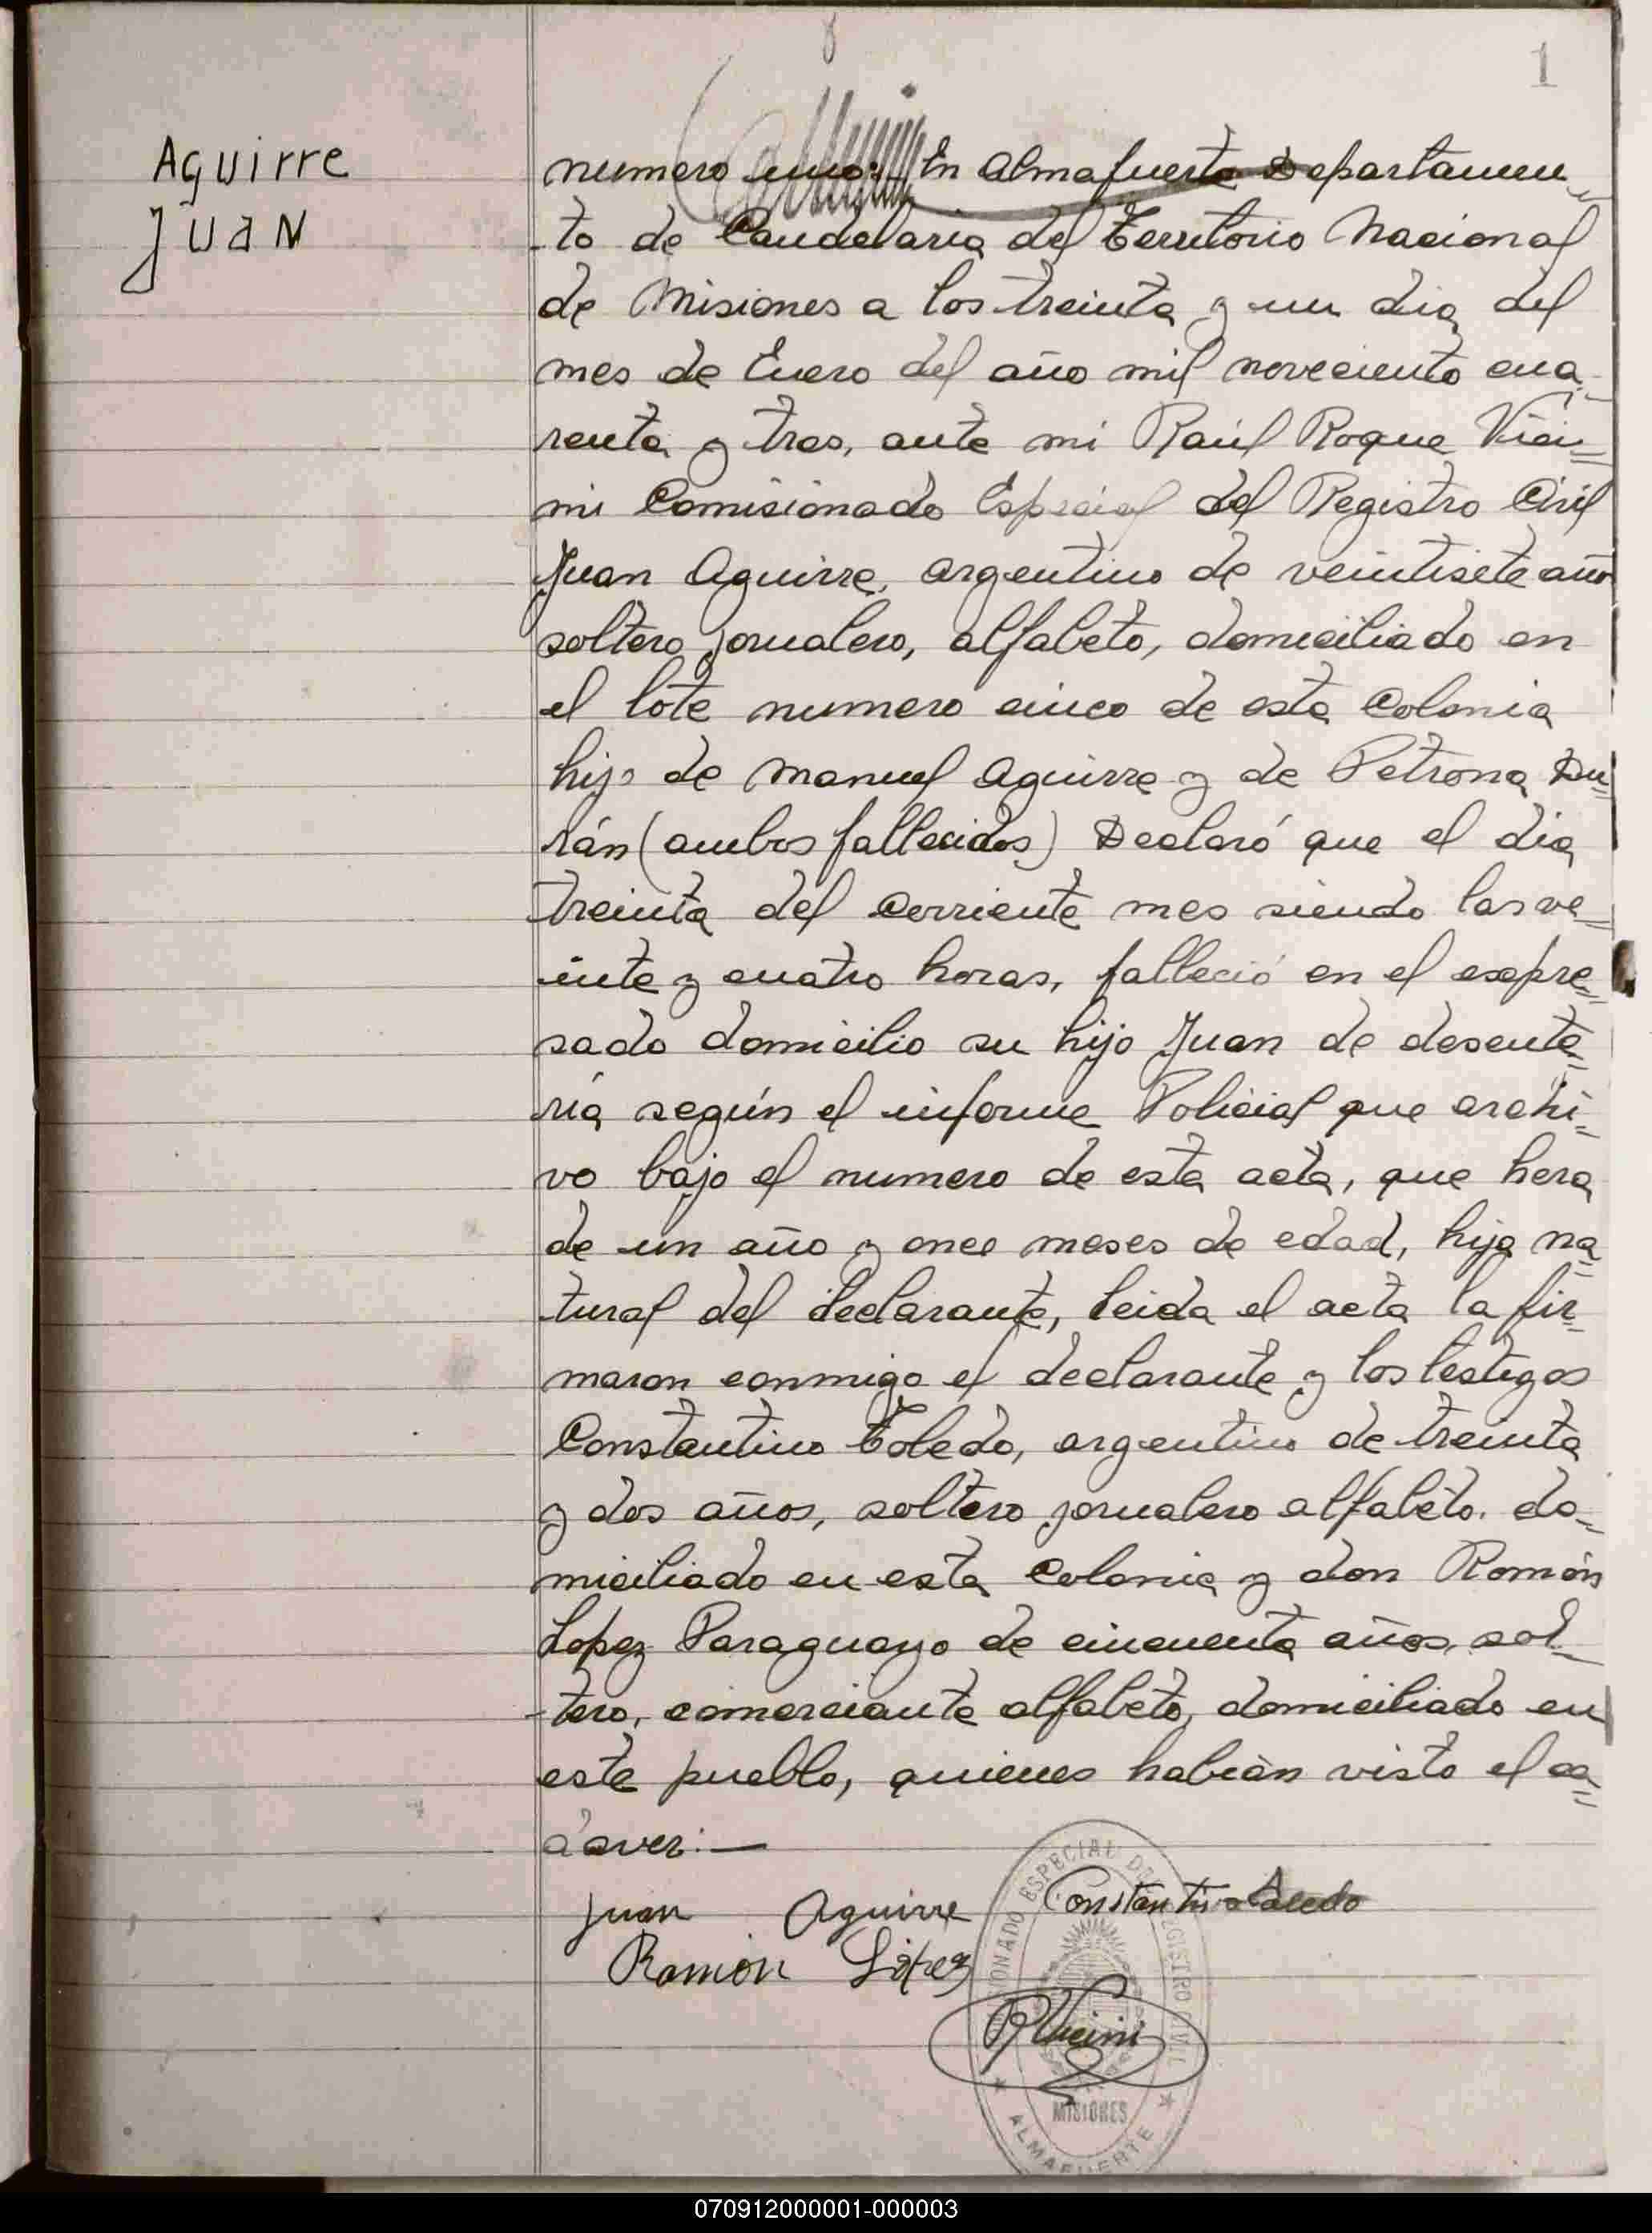 1
Aguirre
Juan
numero uno: En Almafuerte Departamen
to de Candelaria del Territorio Nacional
de Misiones a los treinta y un dia del
mes de Enero del año mil noveciento cua-
renta y tres, ante mi Raúl Roque Viei=
mi Comisionado Especial del Registro Civil
Juan Aguirre, argentino de veintisete años
soltero jornalero, alfabeto, domiciliado en
el lote numero cinco de esta Colonia
hijo de Manuel Aguirre y de Petrona Du=
rán (ambos fallecidos) Declaró que el dia
treinta del corriente mes siendo las ve=
inte y cuatro horas, falleció en el exepre=
sado domicilio su hijo Juan de desente=
ria, según el informe Policial que archi=
vo bajo el numero de esta acta, que hera
de un año y once meses de edad, hijo na=
tural del declarante, leida el acta la fir=
maron conmigo el declarante y los testigos
Constantino Toledo, argentino de treinta
y dos años, soltero jornalero alfabeto. do=
miciliado en esta Colonia y don Román
Lopez Paraguayo de cincuenta años, sol-
tero, comerciante alfabeto, domiciliado en
este pueblo, quienes habían visto el ca=
daver:—
Juan Aguirre Constantino
Ramón López
COMISIONADO ESPECIAL DEL REGISTRO CIVIL
MISIONES
ALMAFUERTE
070912000001-000003